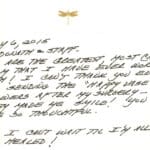 Y 6, 2015
& STAFF,
ARE THE GREATEST, MOST C
Y THAT I HAVE EVER WOR
I CAN'T THANK YOU E
SENDING THE "HAPPY
OWERS AFTER MY SURGERY—
Y MADE ME SMILE! YOU
SO THOUGHTFUL.
I CAN'T WAIT TIL I'M ALL
HEALED!